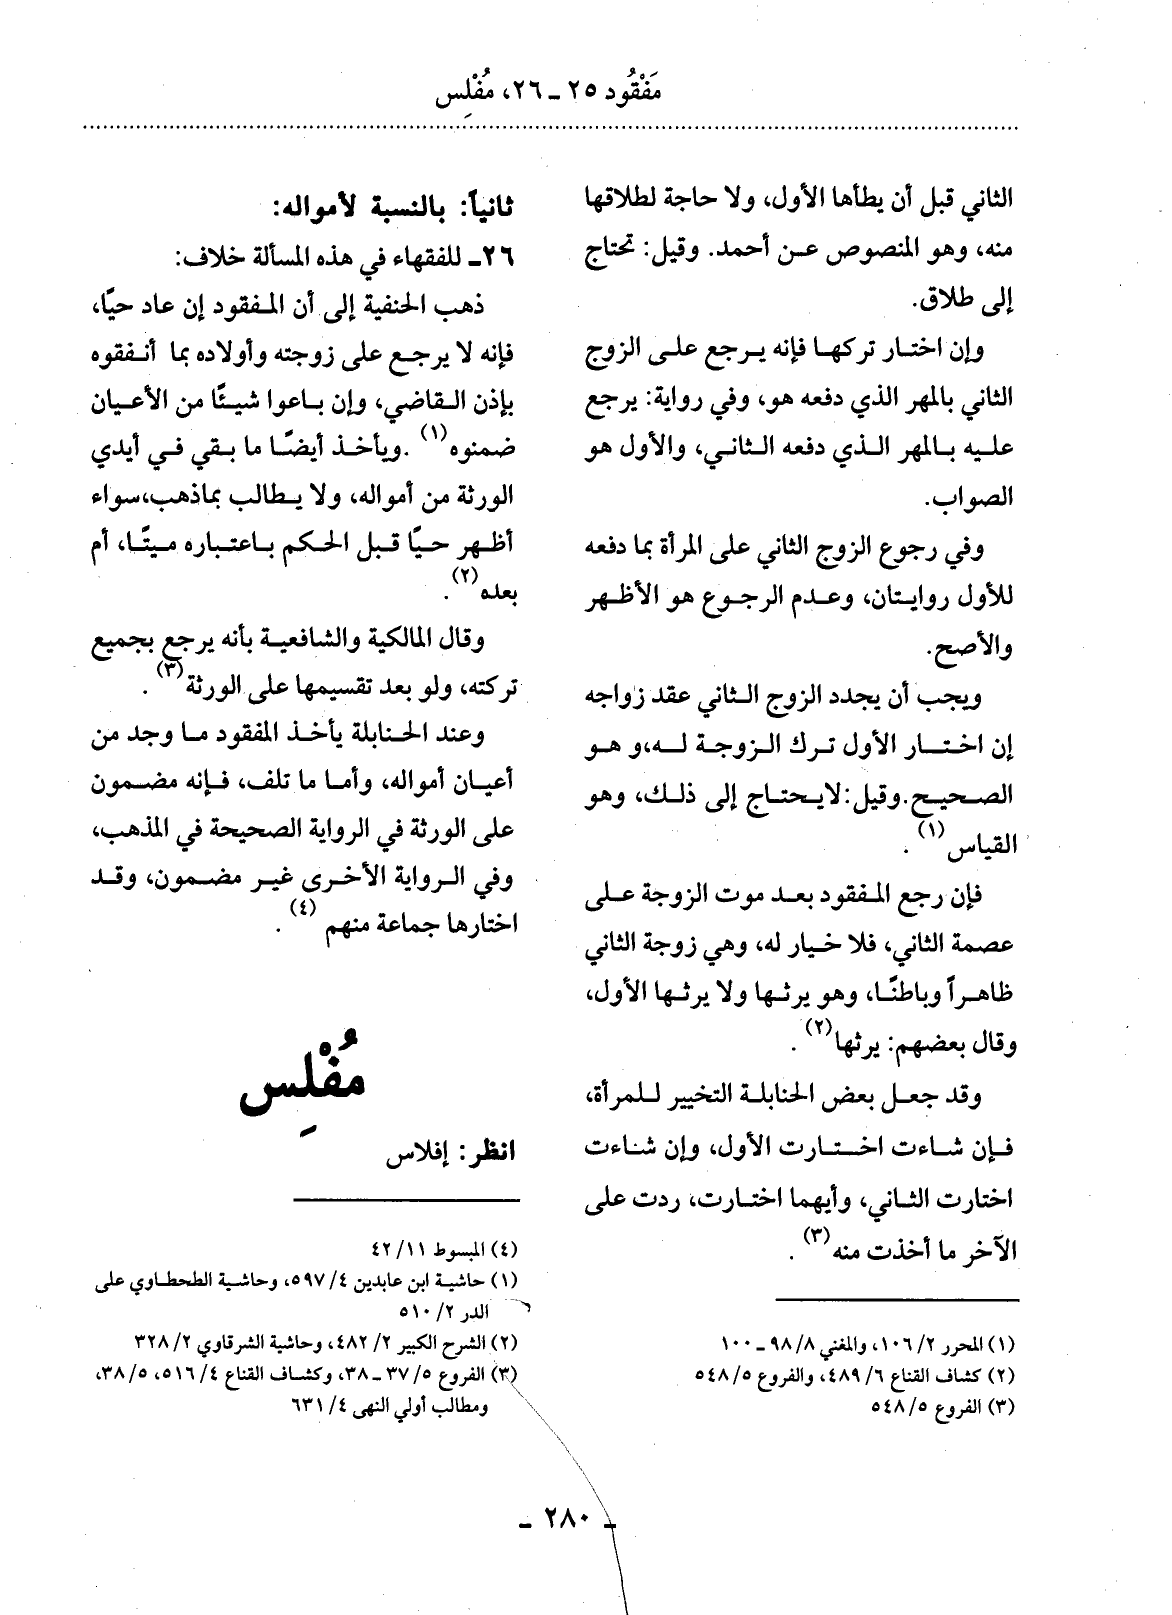 مَفْقُود ٢٥ ـ ٢٦، مُفْلِس
الثاني قبل أن يطأها الأول، ولا حاجة لطلاقها
منه، وهو المنصوص عن أحمد. وقيل: تحتاج
إلى طلاق.
وإن اختار تركها فإنه يرجع على الزوج
الثاني بالمهر الذي دفعه هو، وفي رواية: يرجع
عليه بالمهر الذي دفعه الثاني، والأول هو
الصواب.
وفي رجوع الزوج الثاني على المرأة بما دفعه
للأول روايتان، وعدم الرجوع هو الأظهر
والأصح.
ويجب أن يجدد الزوج الثاني عقد زواجه
إن اختار الأول ترك الزوجة له،و هو
الصحيح.وقيل:لايحتاج إلى ذلك، وهو
القياس(١).
فإن رجع المفقود بعد موت الزوجة على
عصمة الثاني، فلا خيار له، وهي زوجة الثاني
ظاهراً وباطنًا، وهو يرثها ولا يرثها الأول،
وقال بعضهم: يرثها(٢).
وقد جعل بعض الحنابلة التخيير للمرأة،
فإن شاءت اختارت الأول، وإن شاءت
اختارت الثاني، وأيهما اختارت، ردت على
الآخر ما أخذت منه(٣).
(١) المحرر ٢/ ١٠٦، والمغني ٨/ ٩٨ ـ ١٠٠
(٢) كشاف القناع ٦/ ٤٨٩، والفروع ٥/ ٥٤٨
(٣) الفروع ٥/ ٥٤٨
ثانياً: بالنسبة لأمواله:
٢٦ـ للفقهاء في هذه المسألة خلاف:
ذهب الحنفية إلى أن المفقود إن عاد حيًا،
فإنه لا يرجع على زوجته وأولاده بما أنفقوه
بإذن القاضي، وإن باعوا شيئًا من الأعيان
ضمنوه(١) .ويأخذ أيضًا ما بقي في أيدي
الورثة من أمواله، ولا يطالب بماذهب،سواء
أظهر حيًا قبل الحكم باعتباره ميتًا، أم
بعده(٢).
وقال المالكية والشافعية بأنه يرجع بجميع
تركته، ولو بعد تقسيمها على الورثة(٣).
وعند الحنابلة يأخذ المفقود ما وجد من
أعيان أمواله، وأما ما تلف، فإنه مضمون
على الورثة في الرواية الصحيحة في المذهب،
وفي الرواية الأخرى غير مضمون، وقد
اختارها جماعة منهم (٤).
مُفْلِس
انظر: إفلاس
(٤) المبسوط ١١/ ٤٢
(١) حاشية ابن عابدين ٤/ ٥٩٧، وحاشية الطحطاوي على
الدر ٢/ ٥١٠
(٢) الشرح الكبير ٢/ ٤٨٢، وحاشية الشرقاوي ٢/ ٣٢٨
(٣) الفروع ٥/ ٣٧ ـ ٣٨، وكشاف القناع ٤/ ٥١٦، ٥/ ٣٨،
ومطالب أولي النهى ٤/ ٦٣١
ـ ٢٨٠ ـ